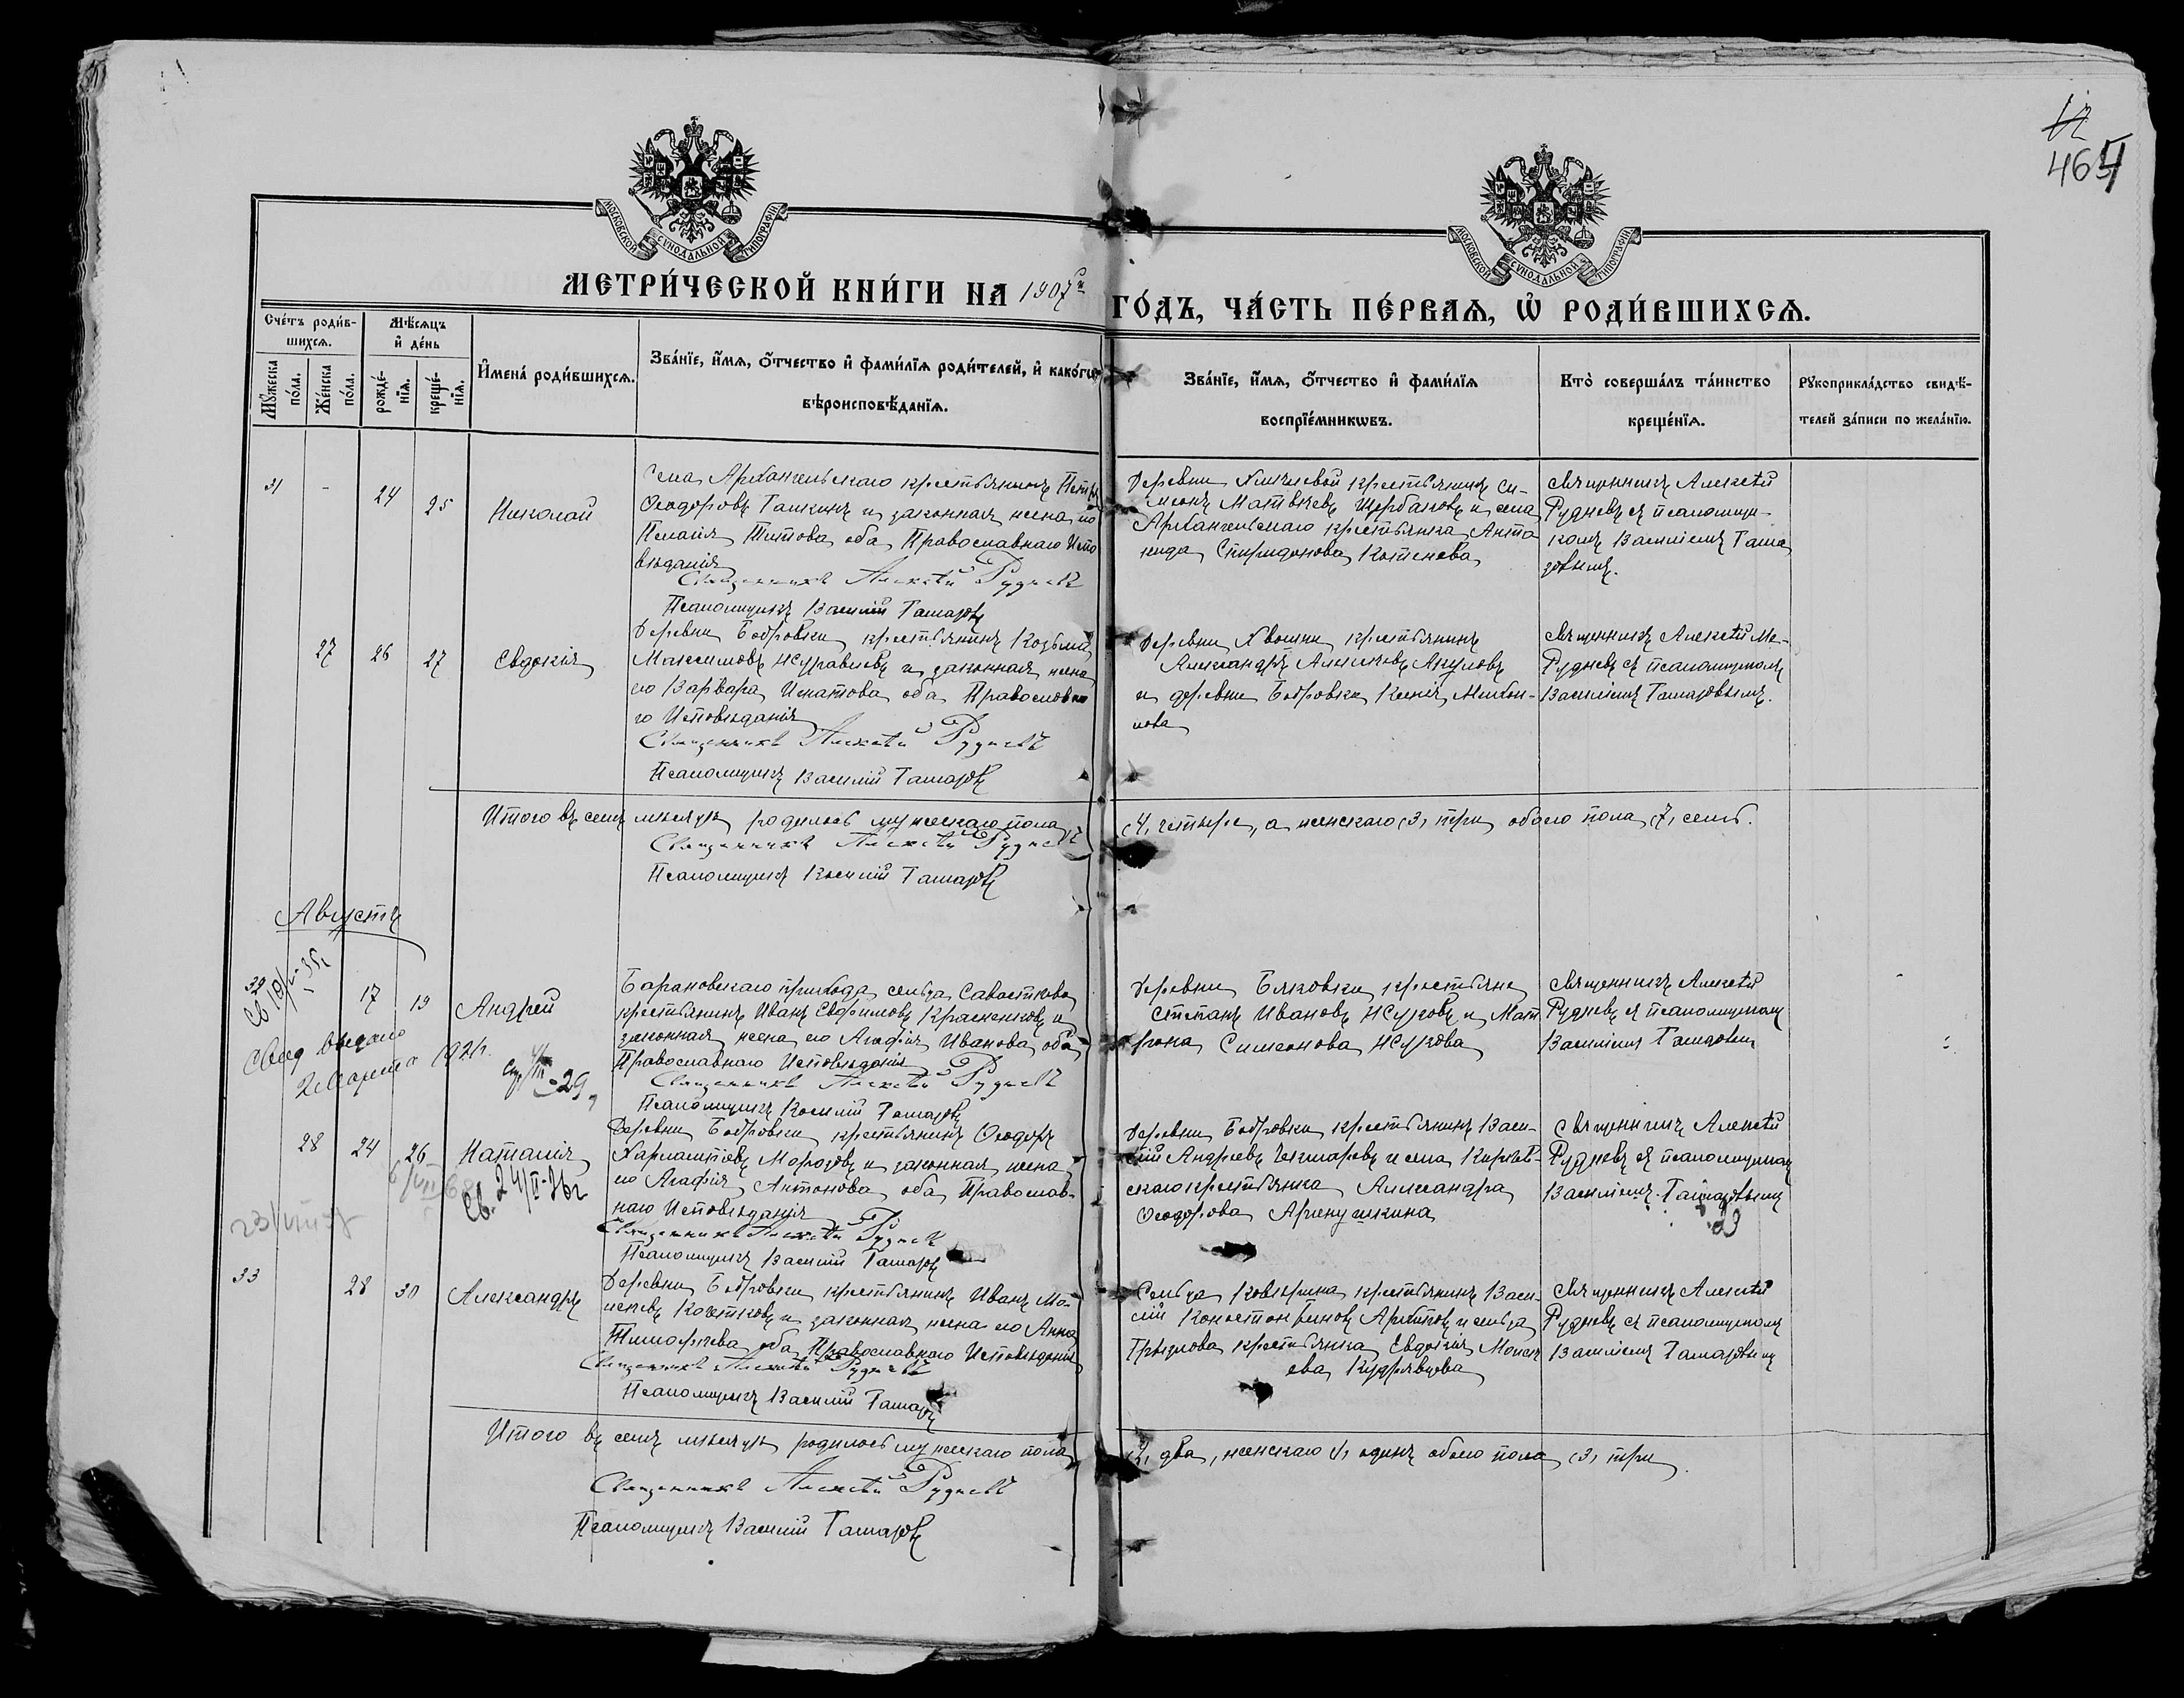 12
464
МОСКОВСКОЙ СѴНОДАЛЬНОЙ ТИПОГРАФІИ
МОСКОВСКОЙ СѴНОДАЛЬНОЙ ТИПОГРАФІИ
МЕТРИ́ЧЕСКОЙ КНИ́ГИ НА 1907й ГО́ДЪ, ЧА́СТЬ ПЕ́РВАѦ, Ѡ҆ РОДИ́ВШИХСѦ.
Сче́тъ роди́в-
шихсѧ.
Мꙋ́жеска по́ла.
Же́нска по́ла.
Мѣ́сѧцъ
и҆ де́нь
рожде́-
нїѧ.
креще́-
нїѧ.
И҆мена̀ роди́вшихсѧ.
Зва́нїе, и҆́мѧ, ѻ҆́тчество и҆ фами́лїѧ роди́телей, и҆ како́гѡ
вѣроисповѣ́данїѧ.
Зва́нїе, и҆́мѧ, ѻ҆́тчество и҆ фами́лїѧ
воспрїе́мникѡвъ.
Кто̀ соверша́лъ та́инство
креще́нїѧ.
Рꙋкоприкла́дство свидѣ́-
телей за́писи по жела́нїю.
31 - 24 25 Николай
Села Архангельскаго крестьянинъ Петръ
Ѳеодоровъ Галкинъ и законная жена его
Пелагія Титова оба Православнаго Испо
вѣданія
Священникъ Алексѣй Рудневъ
Псаломщикъ Василій Гамазовъ
крестьянинъ Си-
меонъ Матвѣевъ Щербаковъ и села
Архангельскаго крестьянка Анто
нида Спиридонова Котенева
Священникъ Алексѣй
Рудневъ съ псаломщи-
комъ Василіемъ Гама
зовымъ.
27 26 27 Евдокія
Деревни Бобровки крестьянинъ Козьма
Максимовъ Журавлевъ и законная жена
его Варвара Игнатова оба Православна
го Исповѣданія
Священникъ Алексѣй Рудневъ
Псаломщикъ Василій Гамазовъ
Деревни Хвощни крестьянинъ
Александръ Алексѣевъ Акуловъ
и деревни Бобровки Ксенія
Священникъ Алексѣй
Рудневъ съ псаломщикомъ
Василіемъ Гамазовымъ.
Итого въ семъ мѣсяцѣ родилось мужескаго пола (4) четыре, а женскаго (3) три обоего пола (7) семь.
Священникъ Алексѣй Рудневъ
Псаломщикъ Василій Гамазовъ
Августъ
32 17 19 Андрей
Барановскаго прихода сельца Савостьева
крестьянинъ Иванъ Ефимовъ Красненковъ и
законная жена его Агафія Иванова оба
Православнаго Исповѣданія
Священникъ Алексѣй Рудневъ
Псаломщикъ Василій Гамазовъ
Деревни Быковки крестьяне
Стефанъ Ивановъ Жуковъ и Мат
рона Симеонова Жукова
Священникъ Алексѣй
Рудневъ съ псаломщикомъ
Василіемъ Гамазовым
28 24 26 Наталія
Деревни Бобровки крестьянинъ Ѳеодоръ
Харлампіевъ Морозовъ и законная жена
его Агафія Антонова оба Православ-
наго Исповѣданія
Священникъ Алексѣй Рудневъ
Псаломщикъ Василій Гамазовъ
Деревни Бобровки крестьянинъ Васи-
лій Андреевъ и села
скаго крестьянка Александра
Ѳеодорова Аринушкина
Священникъ Алексѣй
Рудневъ съ псаломщикомъ
Василіемъ Гамазовымъ
33 28 30 Александръ
Деревни Бобровки крестьянинъ Иванъ Мо-
исеевъ Кочетковъ и законная жена его Анна
Тимофеева оба Православнаго Исповѣданія
Священникъ Алексѣй Рудневъ
Псаломщикъ Василій Гамазовъ
Сельца Ковыркина крестьянинъ Васи-
лій Константиновъ Архиповъ и сельца
крестьянка Евдокія Моисе
ева Кудрявцева
Священникъ Алексѣй
Рудневъ съ псаломщикомъ
Василіемъ Гамазовымъ
Итого въ семъ мѣсяцѣ родилось мужескаго пола (2) два, женскаго (1) одинъ обоего пола (3) три.
Священникъ Алексѣй Рудневъ
Псаломщикъ Василій Гамазовъ